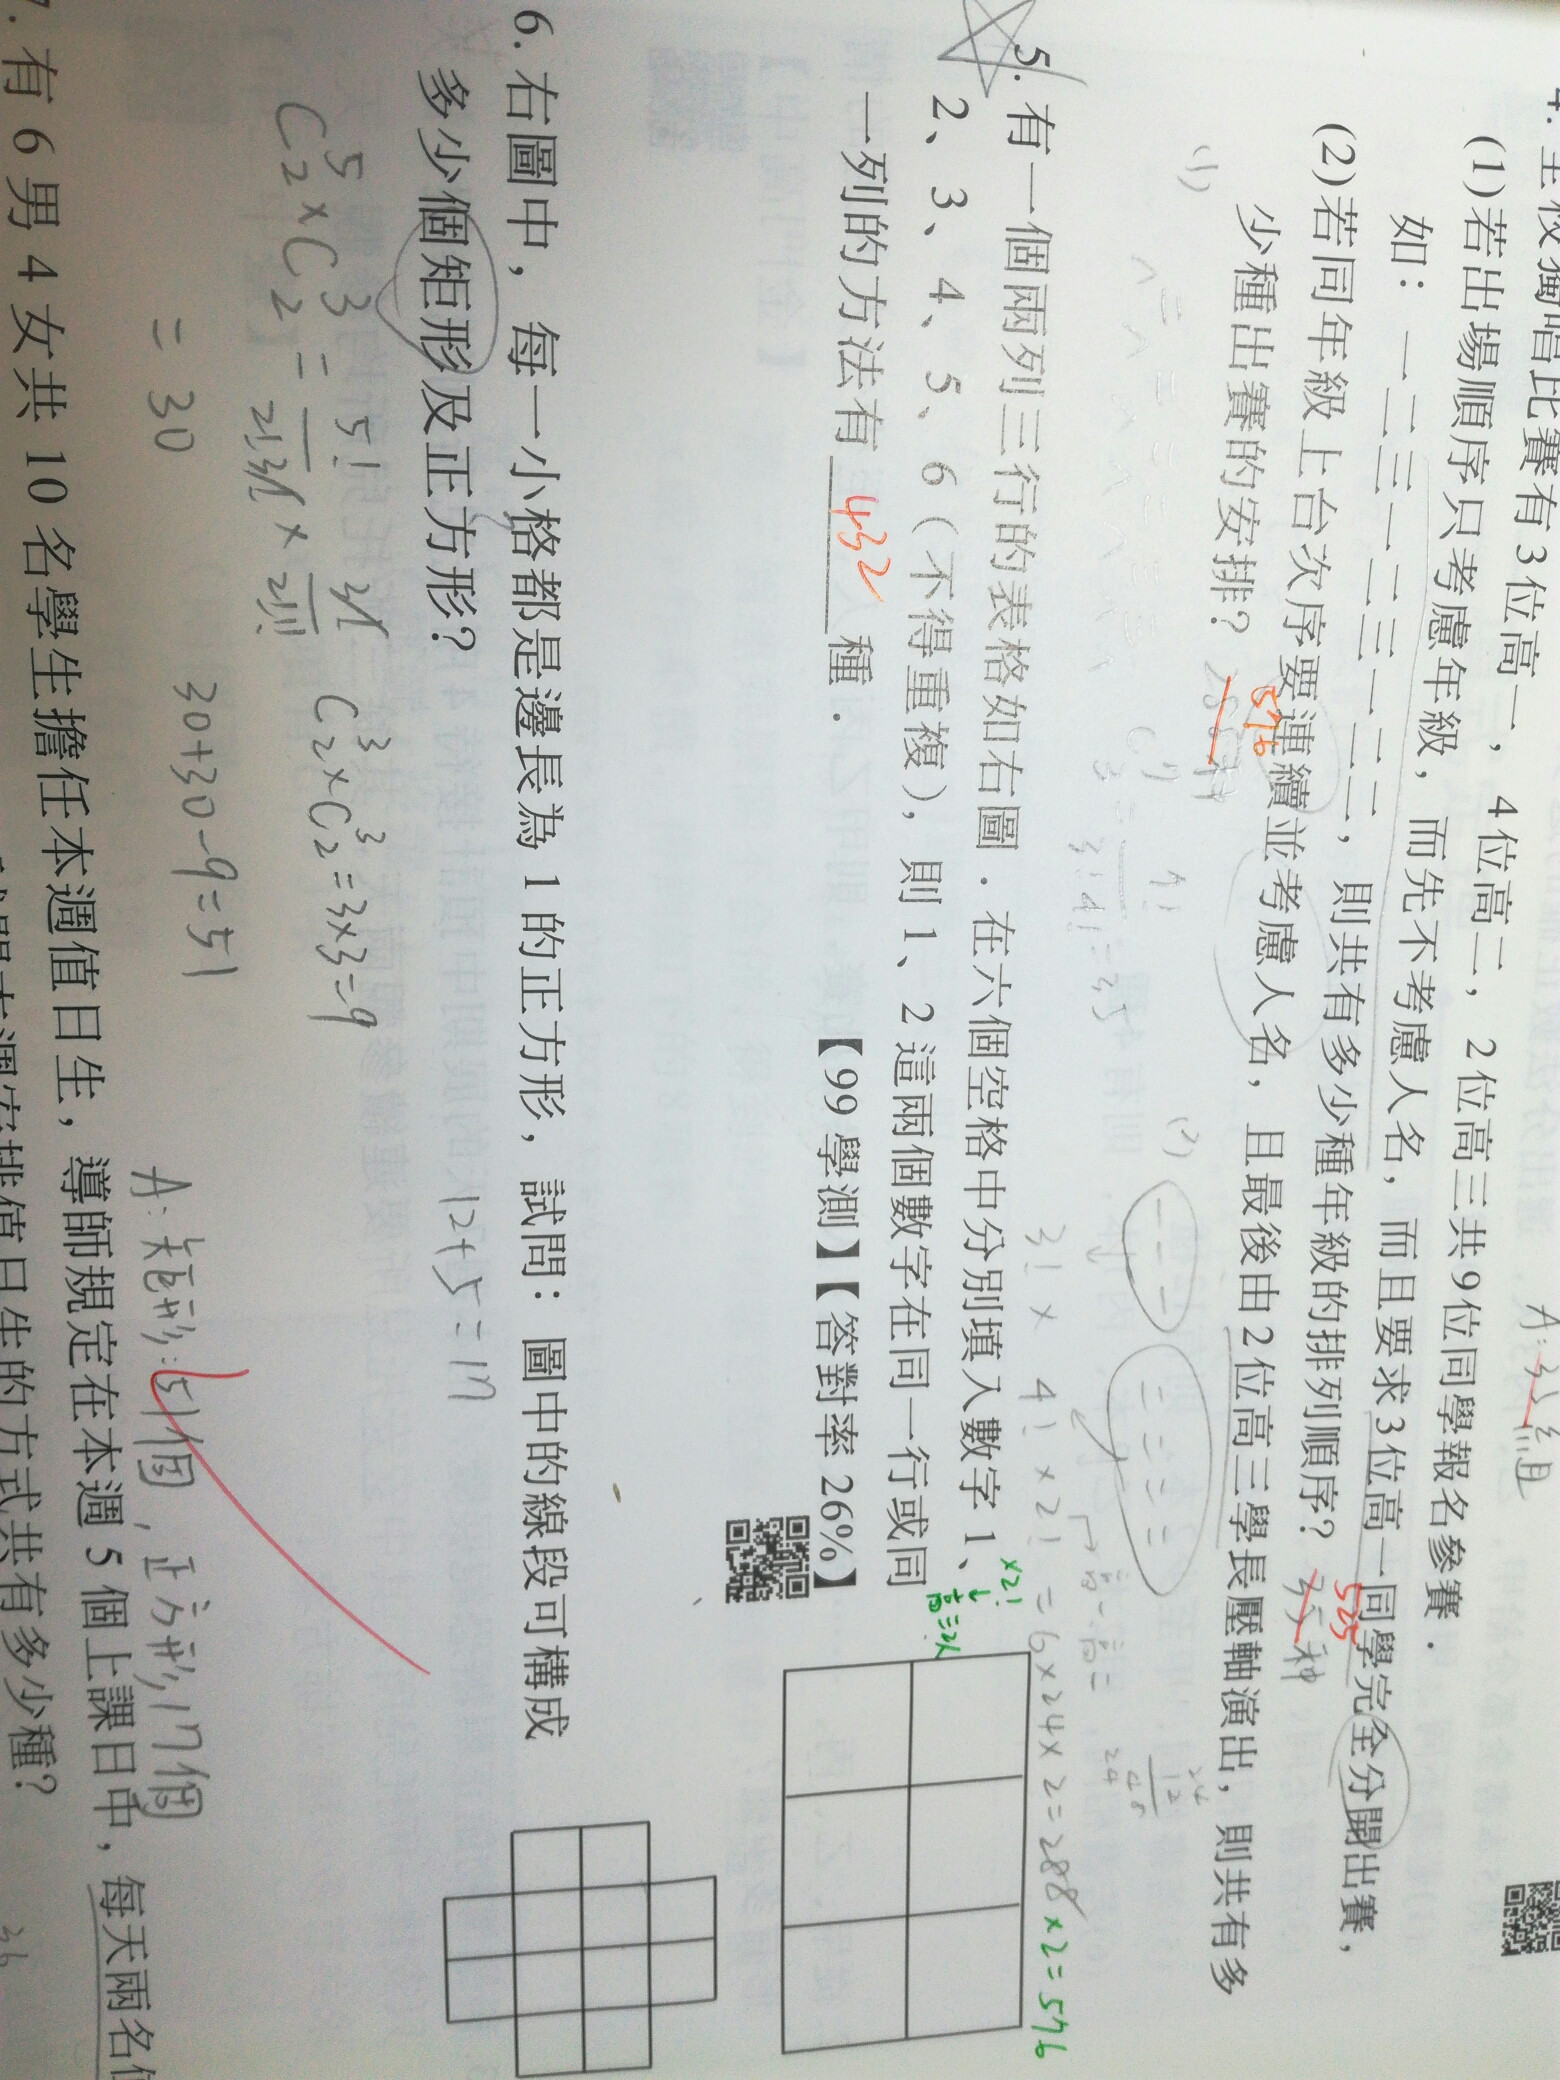 全校獨唱比賽有3位高一，4位高二，2位高三共9位同學報名參賽．
(1)若出場順序只考慮年級，而先不考慮人名，而且要求3位高一同學完全分開出賽，
如：一二三一二二三一二二，則共有多少種年級的排列順序？
35種
525
(2)若同年級上台次序要連續並考慮人名，且最後由2位高三學長壓軸演出，則共有多
少種出賽的安排？
288種
576
(1)
(2)
3! × 4! × 2! = 6×24×2=288 ×2=576
×2!
高三2人
5. 有一個兩列三行的表格如右圖．在六個空格中分別填入數字 1、
2、3、4、5、6（不得重複），則 1、2 這兩個數字在同一行或同
一列的方法有 432 種．
【99 學測】【答對率 26%】
6. 右圖中，每一小格都是邊長為 1 的正方形，試問：圖中的線段可構成
多少個矩形及正方形？
12+5=17
C⁵₂×C³₂ = 5!/2!3! × 3!/2!1!
= 30
C³₂×C³₂=3×3=9
30+30-9=51
A: 矩形:51個，正方形17個
7. 有 6 男 4 女共 10 名學生擔任本週值日生，導師規定在本週 5 個上課日中，每天兩名值